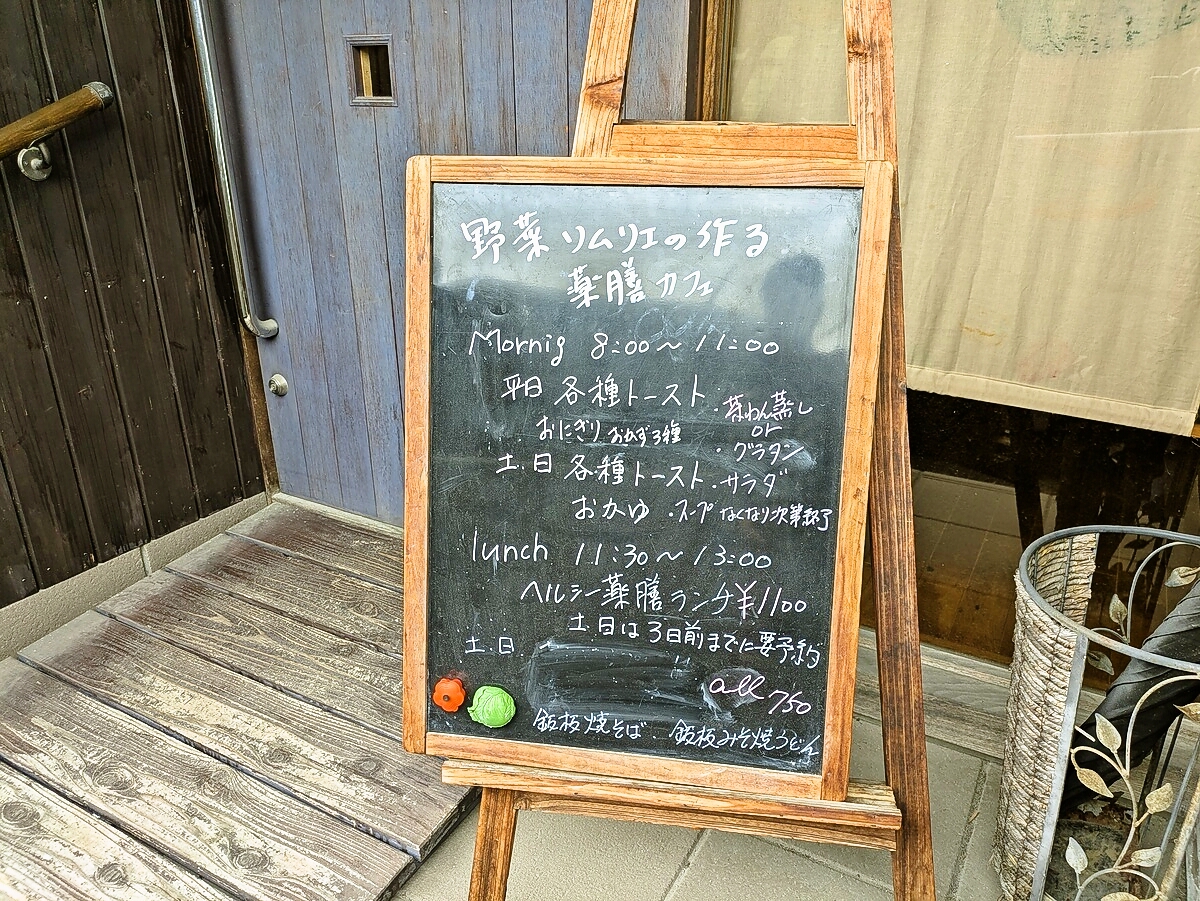 野菜ソムリエの作る
薬膳カフェ
Mornig 8:00〜11:00
平日 各種トースト
・茶わん蒸し
or
・グラタン
おにぎり おかず3種
土.日 各種トースト ・サラダ
おかゆ ・スープ なくなり次第終了
lunch 11:30〜13:00
ヘルシー薬膳ランチ¥1100
土.日は3日前までに要予約
土.日.
all 750
鉄板焼そば . 鉄板みそ焼うどん